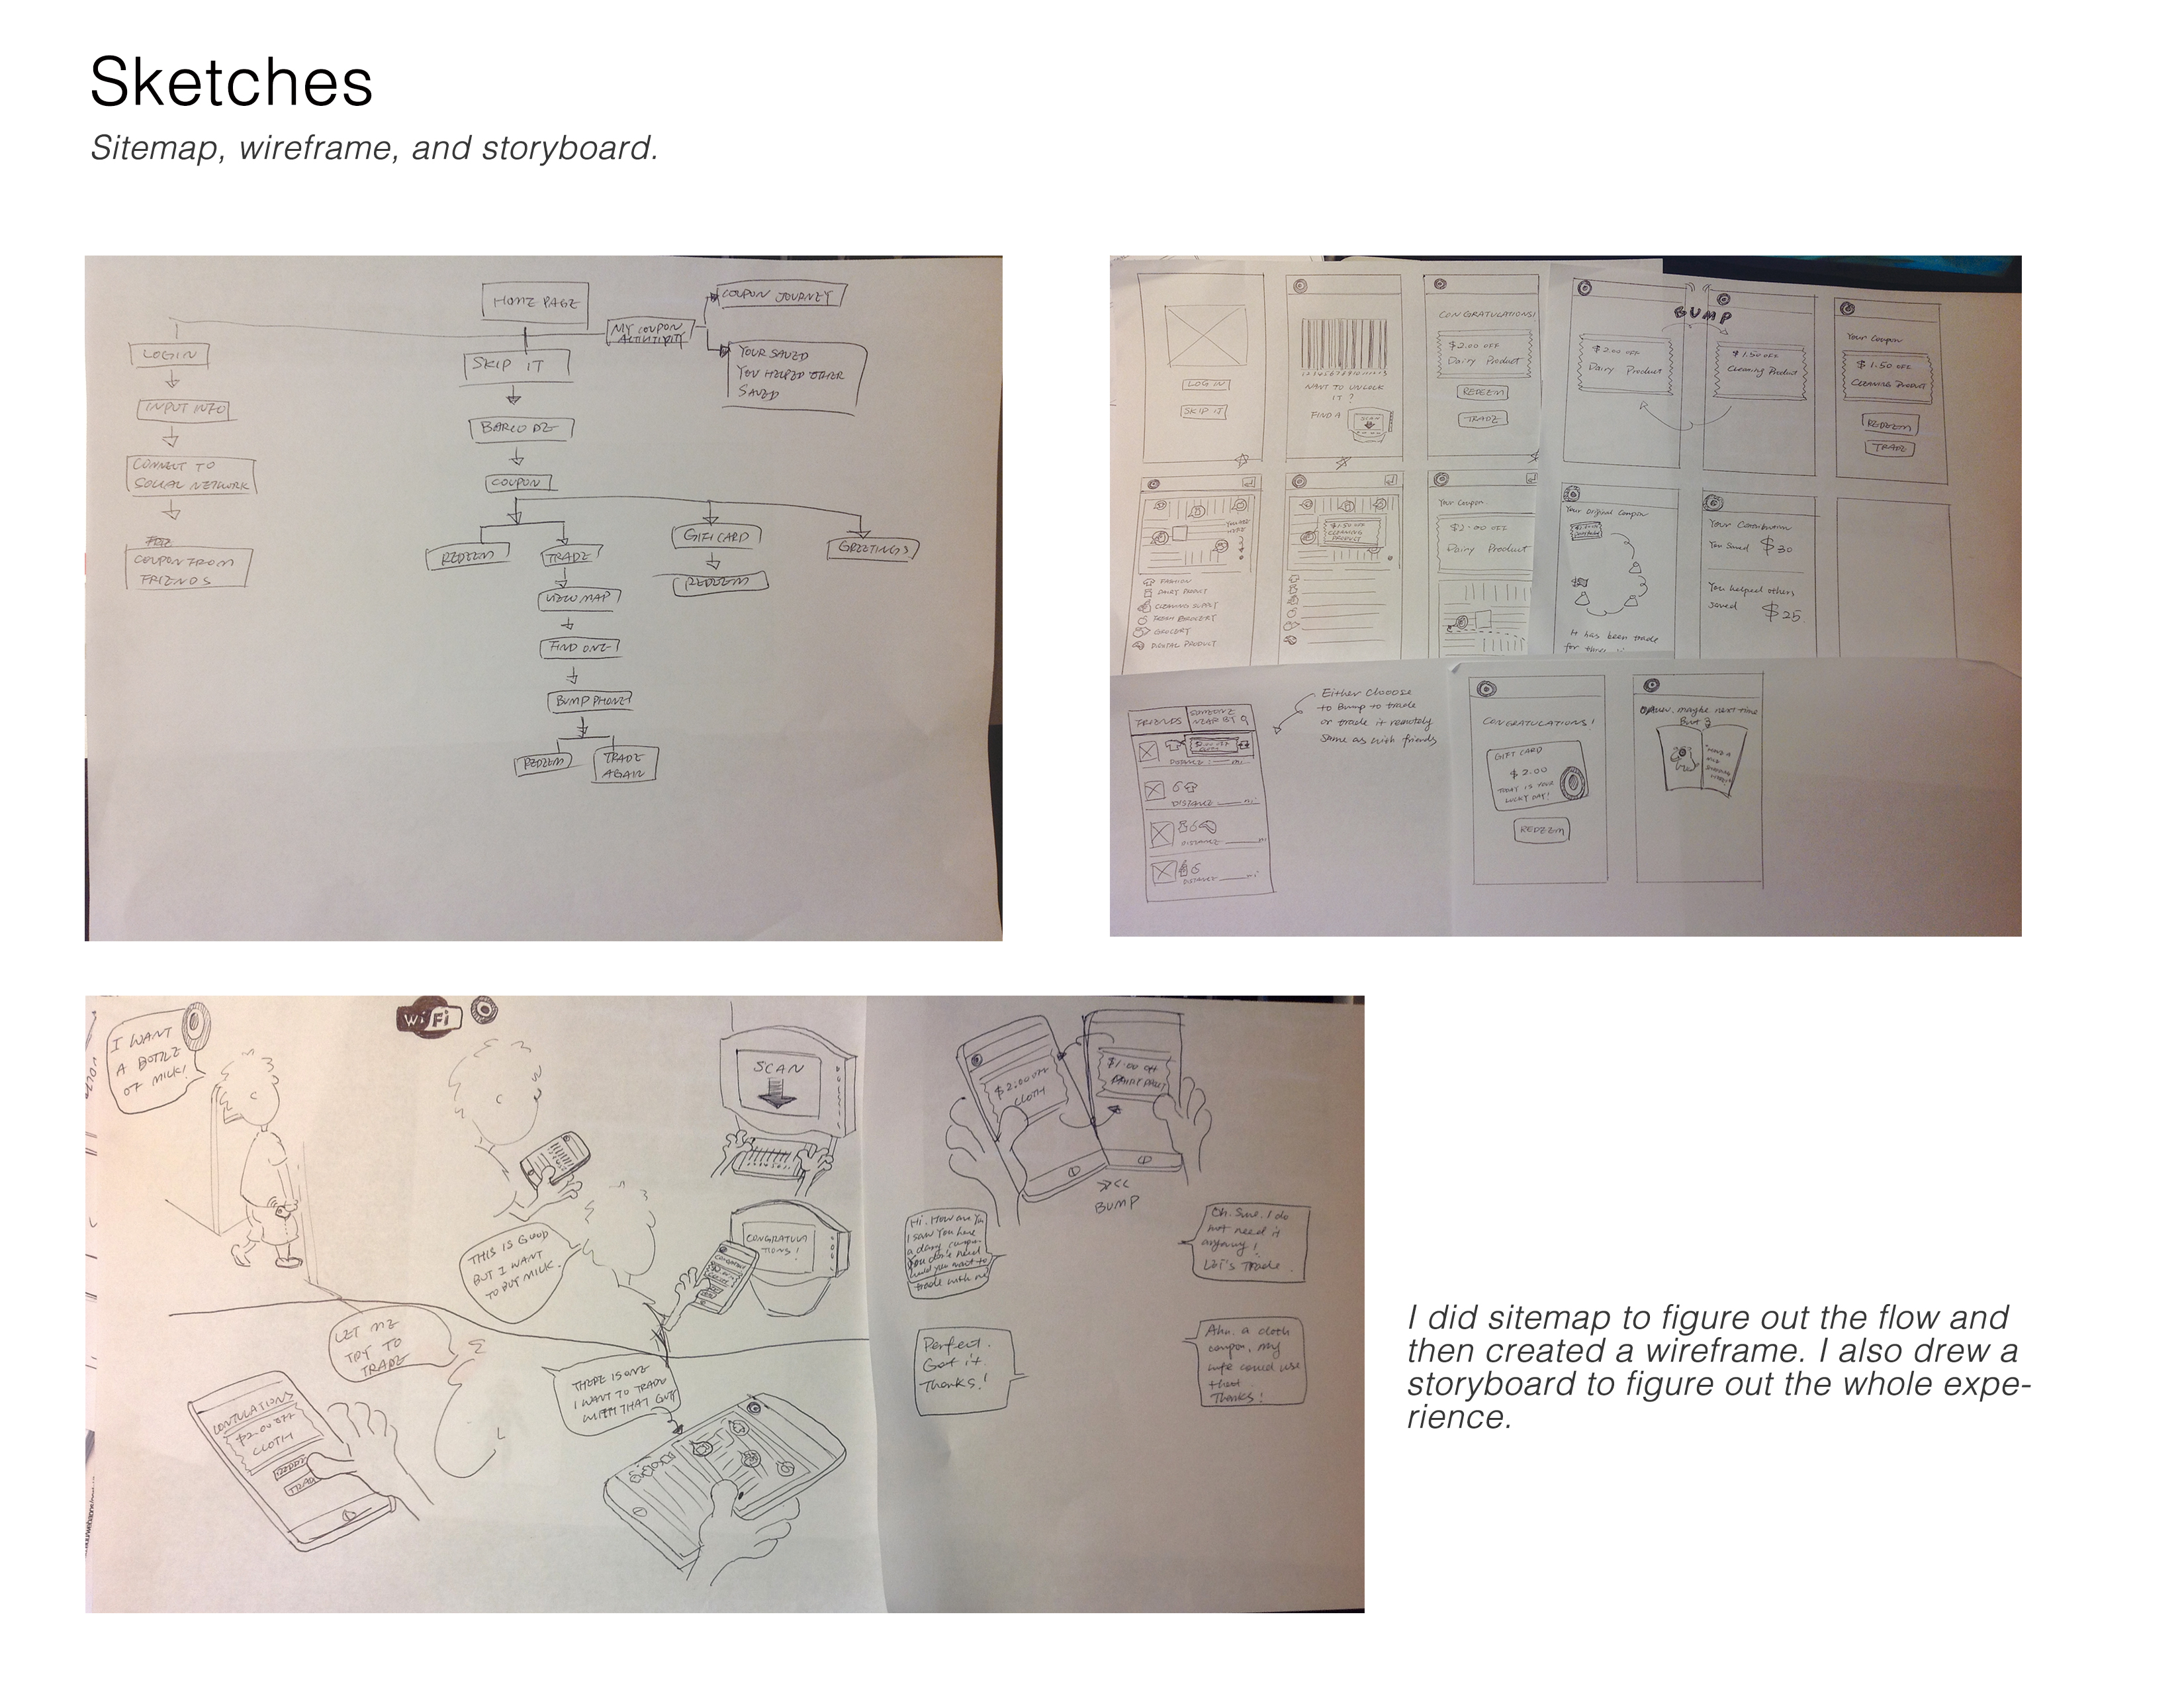 Sketches
Sitemap, wireframe, and storyboard.
HOME PAGE
COUPON JOURNEY
MY COUPON
ACTIVITIY
LOGIN
SKIP IT
YOUR SAVED
YOU HELPED OTHER
SAVED
INPUT INFO
BARCODE
CONNECT TO
SOCIAL NETWORK
COUPON
COUPON FROM
FRIENDS
REDEEM
TRADE
GIFT CARD
GREETINGS
REDEEM
VIEW MAP
FIND ONE
BUMP PHONE
REDEEM
TRADE
AGAIN
LOG IN
SKIP IT
WANT TO UNLOCK
IT?
FIND A
SCAN
CONGRATULATIONS!
$2.00 OFF
Dairy Product
REDEEM
TRADE
BUMP
$2.00 OFF
Dairy Product
$1.50 OFF
Cleaning Product
Your Coupon
$1.50 OFF
CLEANING PRODUCT
REDEEM
TRADE
FASHION
DAIRY PRODUCT
CLEANING SUPPLY
FRESH GROCERY
GROCERY
DIGITAL PRODUCT
$1.50 OFF
CLEANING
PRODUCT
Your Coupon
$2.00 OFF
Dairy Product
Your Original Coupon
It has been trade
for
Your Contribution
You Saved $30
You helped others
saved $25
FRIENDS
SOMEONE
NEAR BY
DISTANCE
DISTANCE
DISTANCE
DISTANCE
Either Chooose
to Bump to trade
or trade it remotely
same as with friends
CONGRATULATIONS!
GIFT CARD
$2.00
TODAY IS YOUR
LUCKY DAY!
REDEEM
maybe next time
But
I WANT
A BOTTLE
OF MILK!
WiFi
SCAN
THIS IS GOOD
BUT I WANT
TO BUY MILK.
CONGRATULA
TIONS!
LET ME
TRY TO
TRADE
$2.00 OFF
CLOTH
THERE IS ONE
I WANT TO TRADE
WITH THAT GUY
$2.00 OFF
CLOTH
$1.00 OFF
BUMP
Hi. How are You
I saw You have
a dairy coupon
You don't need
would you want to
trade with me
Oh. Sure. I do
not need it
Let's Trade.
Perfect.
Got it.
Thanks!
Ahh. a cloth
coupon, my
wife could use
that.
Thanks!
I did sitemap to figure out the flow and
then created a wireframe. I also drew a
storyboard to figure out the whole expe-
rience.